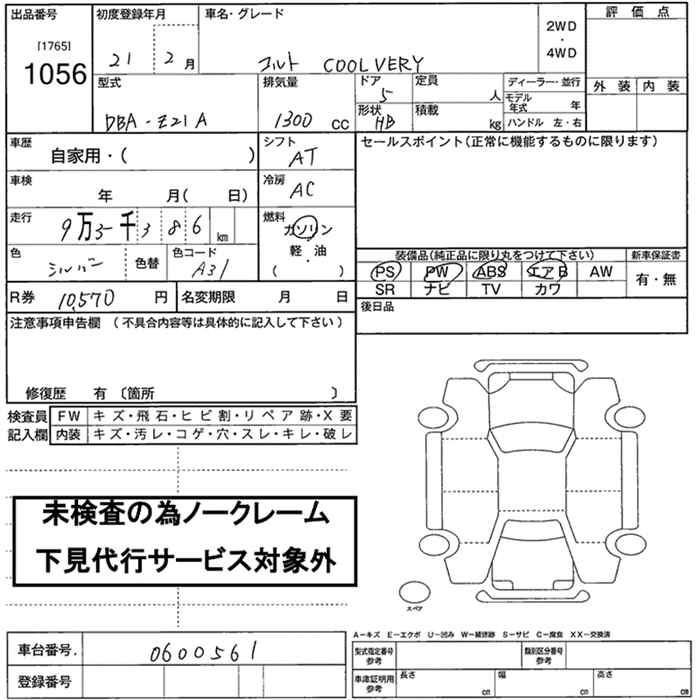 出品番号
[1765]
1056
初度登録年月
21 2 月
車名・グレード
コルト COOLVERY
2WD
・
4WD
評価点
外装 内装
型式
DBA-Z21A
排気量
1300 cc
ドア
5
形状
HB
定員
人
積載
kg
ディーラー・並行
モデル年式 年
ハンドル 左・右
車歴
自家用・( )
シフト
AT
車検
年 月( 日)
冷房
AC
走行
9万3千386 km
燃料
ガソリン
・
軽・油
( )
色
シルバー
色替
色コード
A31
R券 10,570 円
名変期限 月 日
セールスポイント(正常に機能するものに限ります)
装備品(純正品に限り丸をつけて下さい)
PS PW ABS エアB AW
SR ナビ TV カワ
新車保証書
有・無
後日品
注意事項申告欄 (不具合内容等は具体的に記入して下さい)
修復歴 有 〔箇所 〕
検査員記入欄
FW キズ・飛石・ヒビ割・リペア跡・X要
内装 キズ・汚レ・コゲ・穴・スレ・キレ・破レ
未検査の為ノークレーム
下見代行サービス対象外
スペア
A-キズ E-エクボ U-凹み W-補修跡 S-サビ C-腐食 XX-交換済
車台番号. 0600561
登録番号
型式指定番号
参考
類別区分番号
参考
車庫証明用
参考
長さ cm
幅 cm
高さ cm